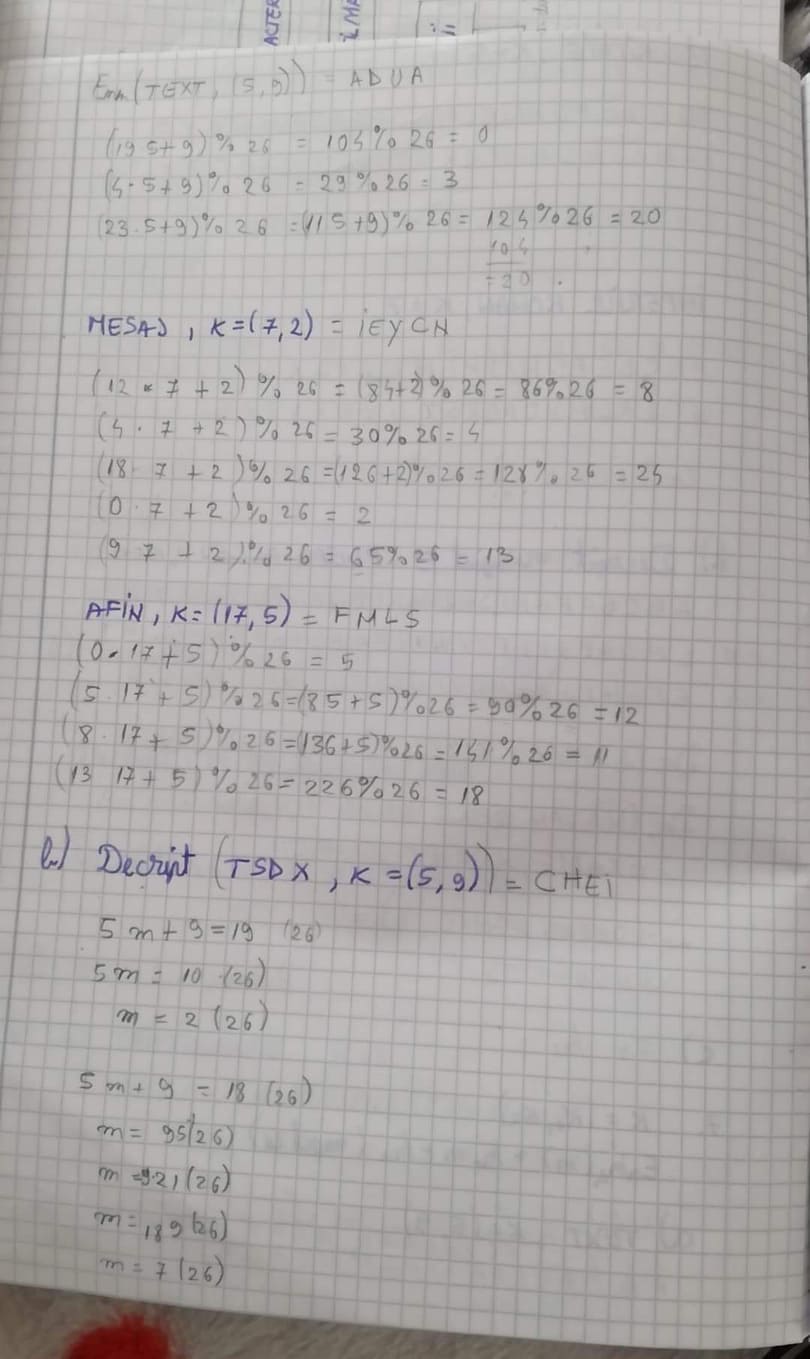 ACTER
i MA
i =
Enm(TEXT, (5,9)) = ADUA
(19 5+9)% 26 = 104% 26 = 0
(4·5+9)% 26 = 29%26 = 3
(23·5+9)% 26 =(115+9)% 26 = 124%26 = 20
104
=20
MESAJ, K=(7,2) = iEYCN
(12 * 7 + 2) % 26 = (84+2)% 26 = 86%26 = 8
(4 · 7 + 2) % 26 = 30%26 = 4
(18 7 + 2)% 26 =(126+2)%26 = 128% 26 = 24
(0 · 7 + 2)% 26 = 2
(9 7 + 2)% 26 = 65%26 = 13
AFiN, K=(17,5) = FMLS
(0·17+5)% 26 = 5
(5·17+5)%26=(85+5)%26 = 90%26 = 12
(8·17+5)%26=(136+5)%26 = 141%26 = 11
(13 17+5)%26= 226%26 = 18
b) Decript (TSDX, K=(5,9)) = CHEi
5m+9=19 (26)
5m = 10 (26)
m = 2 (26)
5m+9 = 18 (26)
m = 95(26)
m =9·21(26)
m =189(26)
m = 7(26)